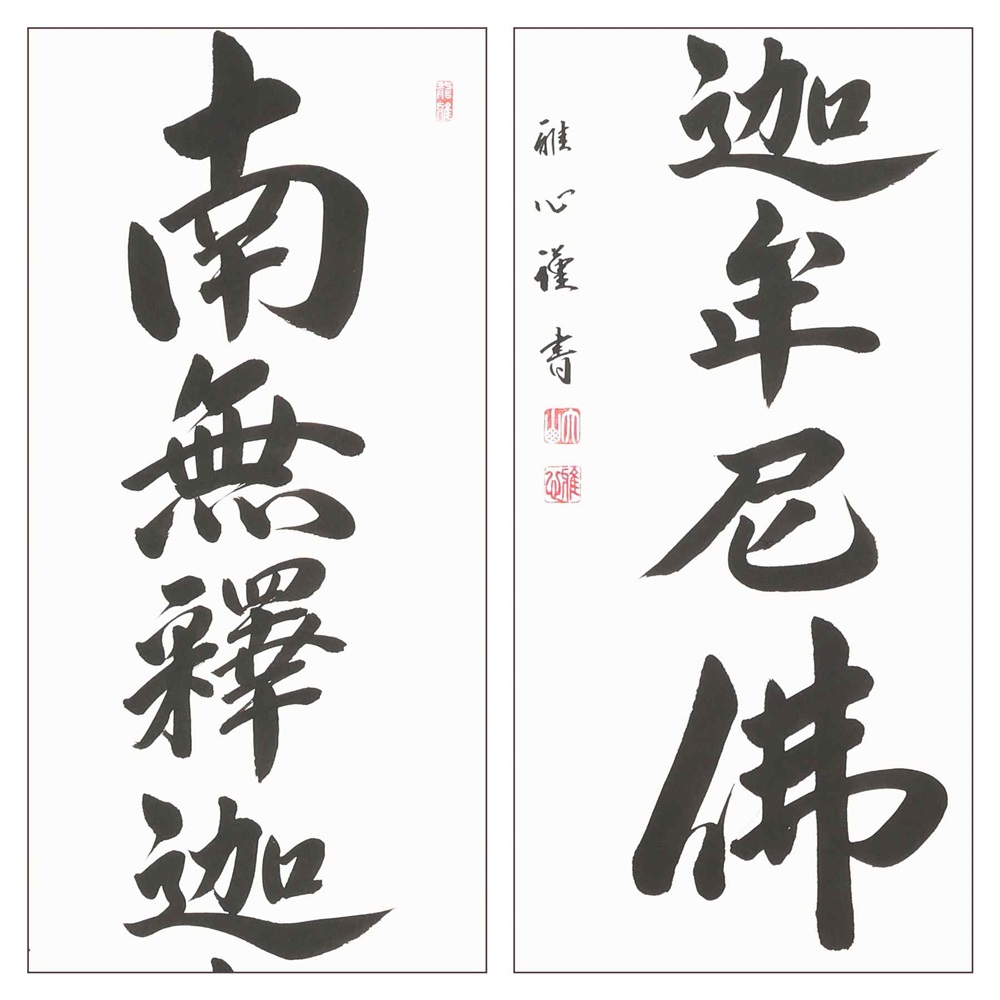 南無釋迦
迦牟尼佛
雅心謹書
雅心